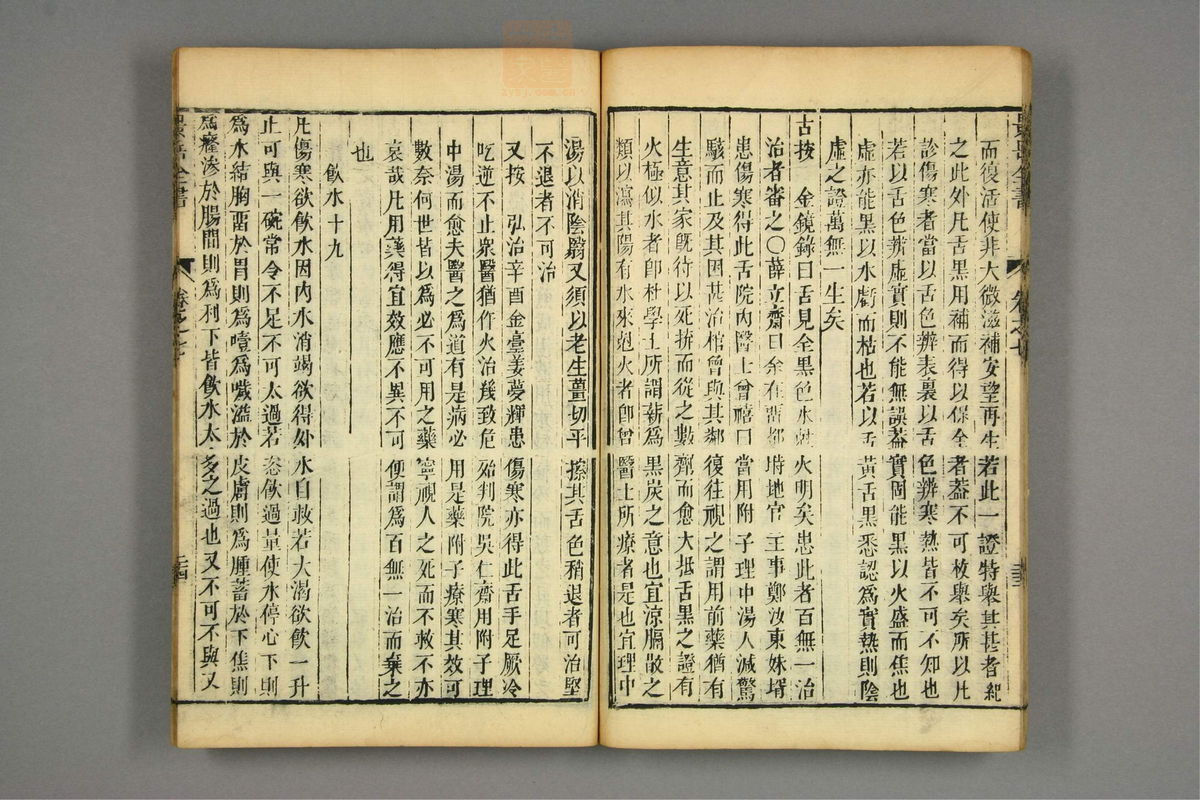 而復活使非大微滋補安望再生若此一證特舉其甚者紀
之此外凡舌黑用補而得以保全者葢不可枚舉矣所以凡
診傷寒者當以舌色辨表裏以舌色辨寒熱皆不可不知也
若以舌色辨虛實則不能無誤葢實固能黑以火盛而焦也
虛亦能黑以水虧而枯也若以舌黃舌黑悉認爲實熱則陰
虛之證萬無一生矣
古按 金鏡錄曰舌見全黑色水尅火明矣患此者百無一治
治者審之○薛立齋曰余在留都時地官主事鄭汝東妹壻
患傷寒得此舌院內醫士曾禧曰當用附子理中湯人減驚
駭而止及其困甚治棺曾與其鄰復往視之謂用前藥猶有
生意其家旣待以死拚而從之數劑而愈大抵舌黑之證有
火極似水者卽杜學士所謂薪爲黑炭之意也宜涼膈散之
類以瀉其陽有水來尅火者卽曾醫士所療者是也宜理中
湯以消陰翳又須以老生薑切平擦其舌色稍退者可治堅
不退者不可治
又按 弘治辛酉金臺姜夢輝患傷寒亦得此舌手足厥冷
吃逆不止衆醫猶作火治幾致危殆判院吳仁齋用附子理
中湯而愈夫醫之爲道有是病必用是藥附子療寒其效可
數奈何世皆以爲必不可用之藥寧視人之死而不救不亦
哀哉凡用藥得宜效應不異不可便謂爲百無一治而棄之
也
飲水十九
凡傷寒欲飲水因內水消竭欲得外水自救若大渴欲飲一升
止可與一碗常令不足不可太過若恣飲過量使水停心下則
爲水結胸畱於胃則爲噎爲噦溢於皮膚則爲腫蓄於下焦則
爲癃滲於腸間則爲利下皆飲水太多之過也又不可不與又
景岳全書
卷之七
三十三
景岳全書
卷之七
三十四